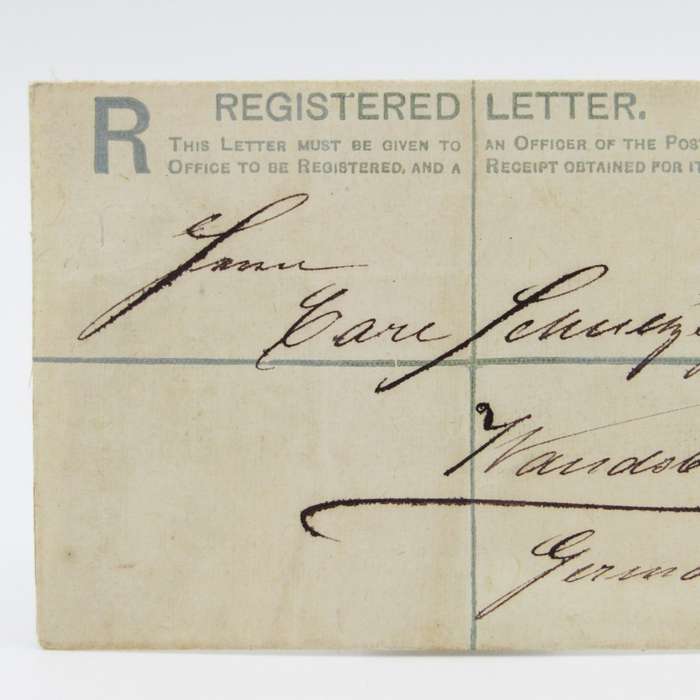 R REGISTERED LETTER.
THIS LETTER MUST BE GIVEN TO AN OFFICER OF THE POST
OFFICE TO BE REGISTERED, AND A RECEIPT OBTAINED FOR IT
Herrn
Carl
Wandsb
Germa